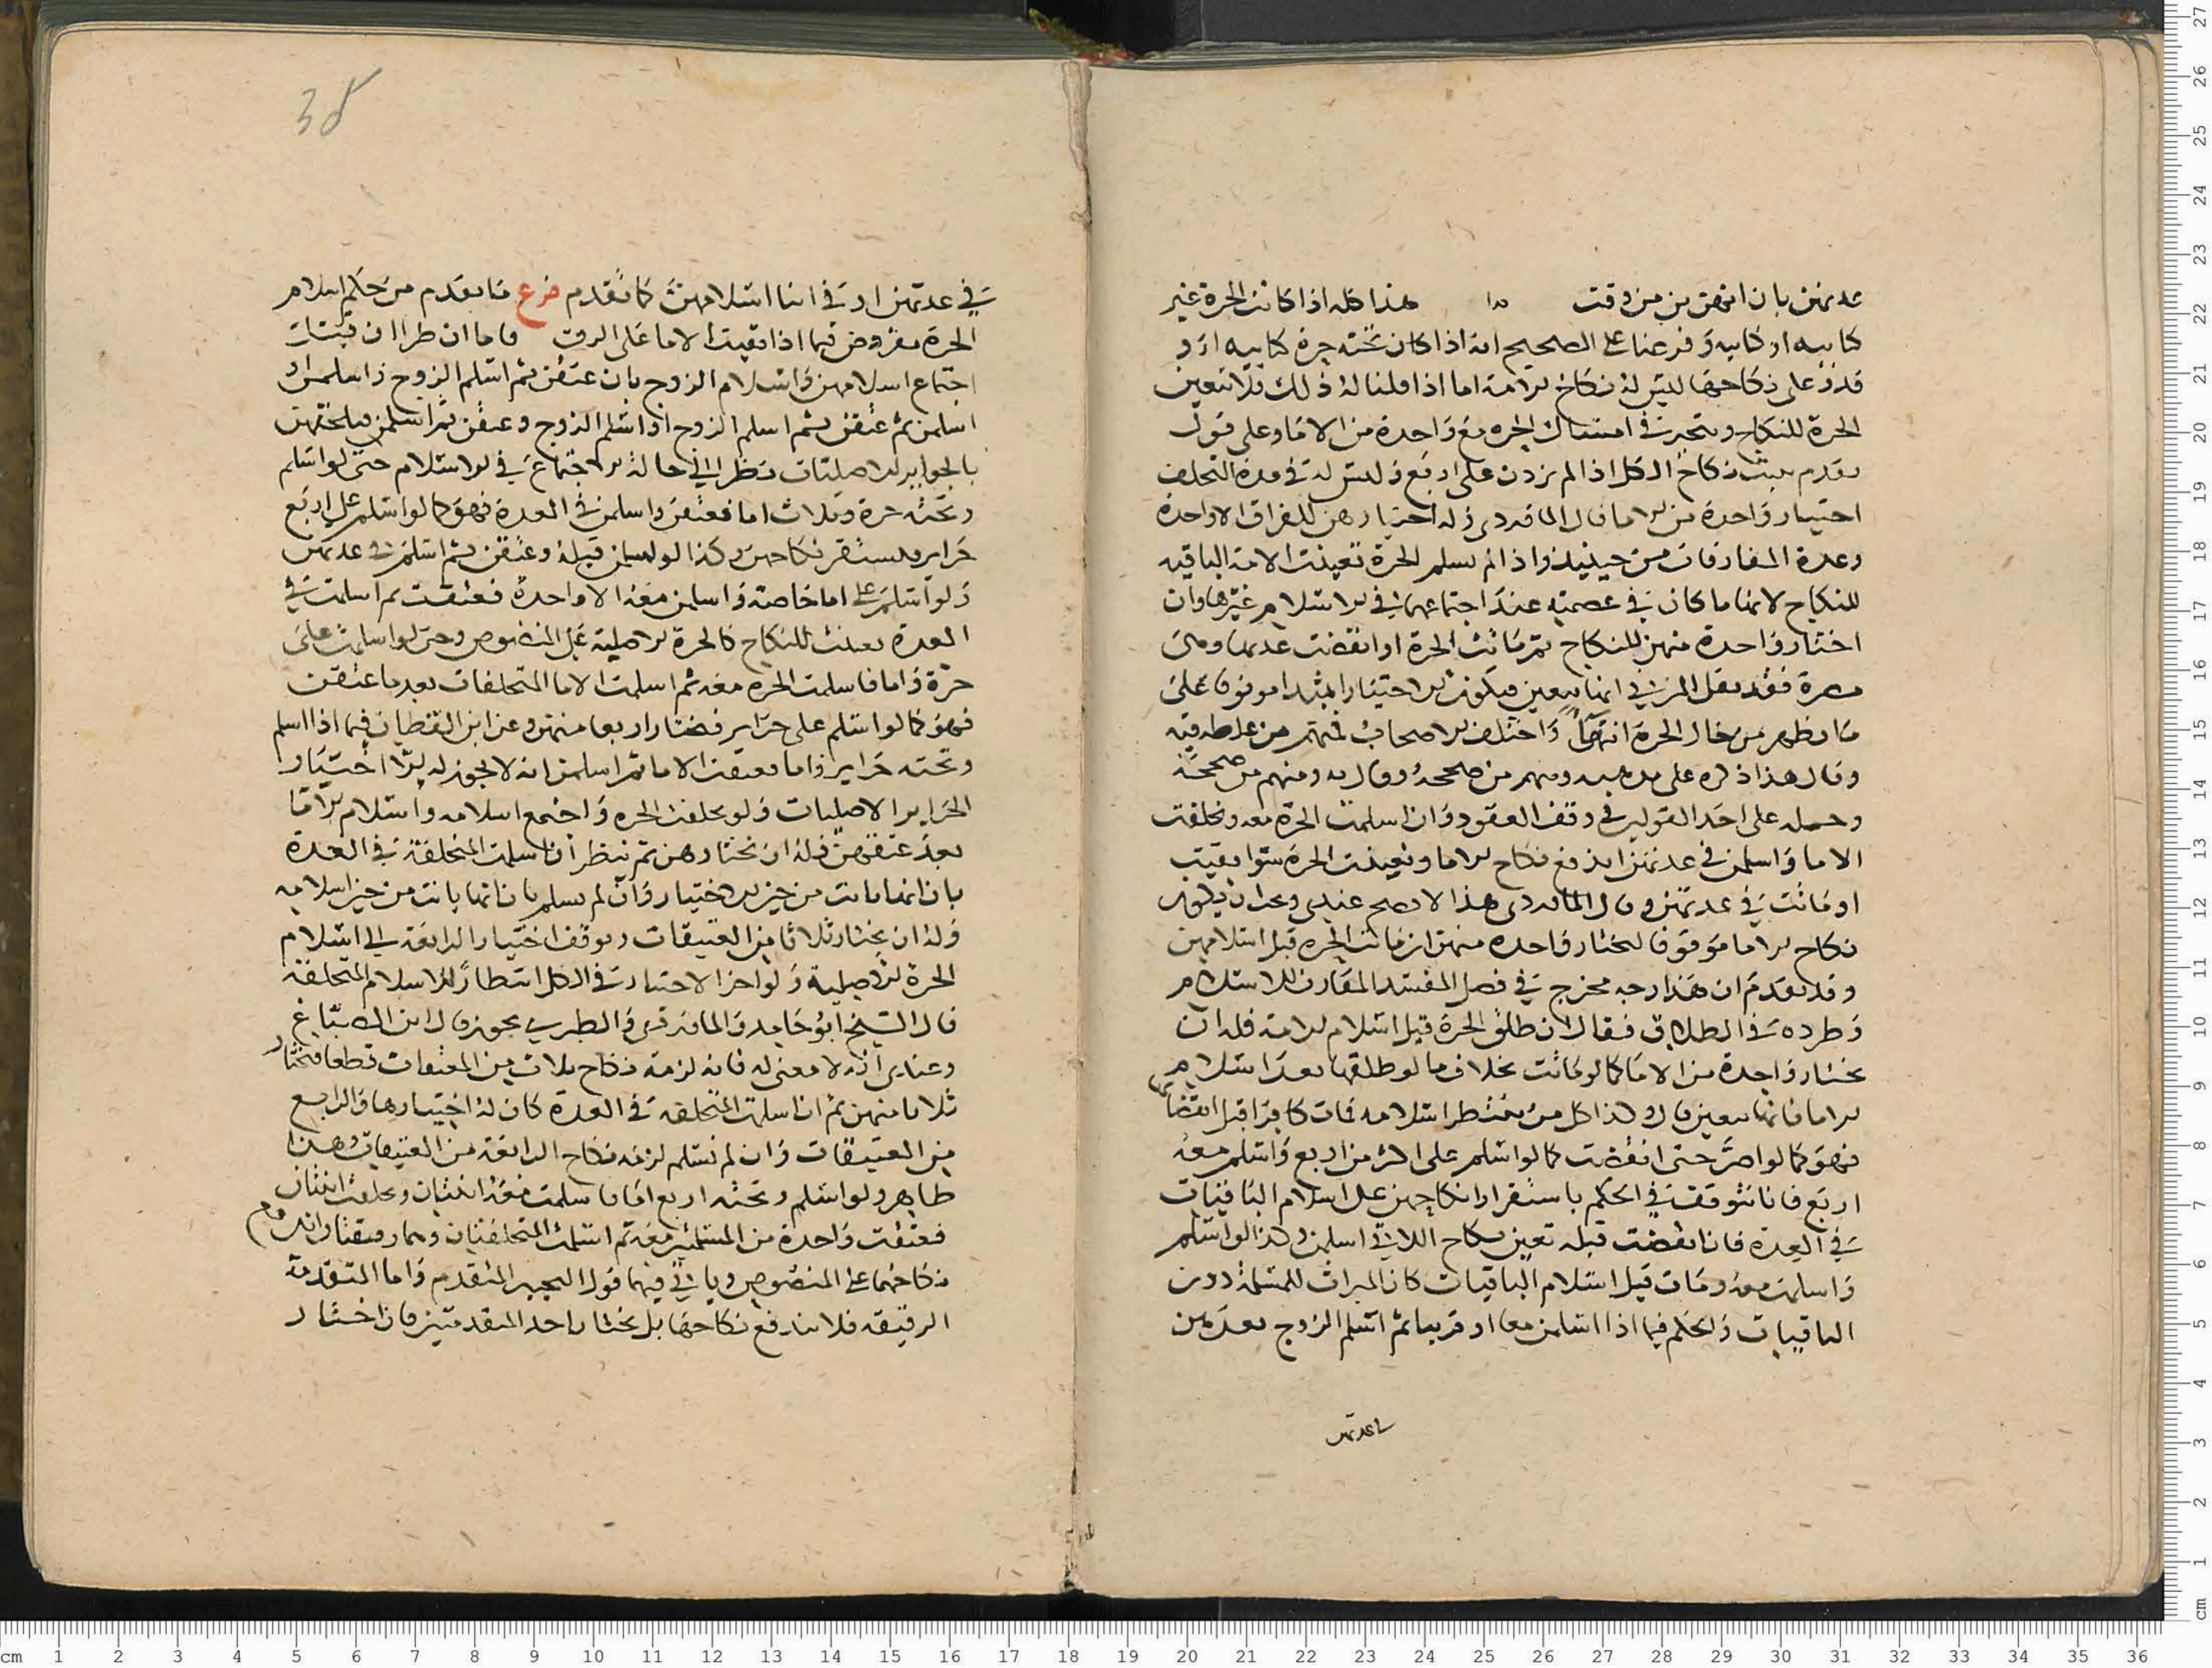 عدتهن بان انهن بن من وقت هذا كله اذا كانت الحرة غير
كتابيه او كتابيه وفرعنا على الصحيح انه اذا كان تحته حرة كتابيه او و
قدر على نكاحها ليس له نكاح الامة اما اذا قلنا له ذلك فلا تتعين
الحرة للنكاح ويتخير في امساك الحره مع واحدة من الاما وعلى قول
تقدم يثبت نكاح الكل اذا لم يزدن على اربع وليس له في مدة التخلف
اختيار واحدة من الاما قال الماوردي وله اختيارهن للفراق الا واحدة
وعدة المفارقات من حينيذ واذا لم تسلم الحرة تعينت الامة الباقيه
للنكاح لانها ما كان في عصمته عند اجتماعهما في الاسلام غيرها وان
اختار واحدة منهن للنكاح ثم ماتت الحرة او انقضت عدتها وهي
مصرة فقد نقل المزني انها تتعين فيكون الاختيار المبتدا موقوفا على
ما يظهر من حال الحرة انتهى واختلف الاصحاب فمنهم من غلطه فيه
وقال هذا ذكره على مذهبه ومنهم من صححه وقال به ومنهم من صححه
وحمله على احد القولين في وقف العقود وان اسلمت الحرة معه وتخلفت
الاما واسلمن في عدتهن اندفع نكاح الاما وتعينت الحرة سوا بقيت
او ماتت في عدتهن وقال الماوردي هذا الاصح عندي وعندي ان يكون
نكاح الاما موقوفا ليختار واحده منهن ان ماتت الحره قبل اسلامهن
وقد تقدم ان هذا وجه مخرج في فصل المفسد المقارن للاسلام
وطرده في الطلاق فقال ان طلق الحرة قبل اسلام الامة فله ان
يختار واحدة من الاما كما لو ماتت بخلاف ما لو طلقها بعد اسلام
الاما فانها تتعين قال وكذا كل من ينتظر اسلامه فمات كافرا قبل انقضائها
فهو كما لو اصر حتى انقضت كما لو اسلم على اكثر من اربع واسلم معه
اربع فانا نتوقف في الحكم باستقرار نكاحهن على اسلام الباقيات
في العدة فان انقضت قبله تعين نكاح اللاتي اسلمن وكذا لو اسلم
واسلمت معه ومات قبل اسلام الباقيات كان الميراث للمسلمة دون
الباقيات والحكم فيما اذا اسلمن معا او قريبا ثم اسلم الزوج بعدهن
في عدتهن
38
في عدتهن او في اثنا اسلامهن كما تقدم فرع ما تقدم من حكم اسلام
الحرة مفروض فيما اذا بقيت الاما على الرق فاما ان طرا ان قبيل
اجتماع اسلامهن واسلام الزوج بان عتقن ثم اسلم الزوج واسلمن او
اسلمن ثم عتقن ثم اسلم الزوج او اسلم الزوج وعتقن ثم اسلمن فيلتحقن
بالحراير الاصليات نظرا الى حالة الاجتماع في الاسلام حتى لو اسلم
وتحته حرة وثلاث اما فعتقن واسلمن في العدة فهو كما لو اسلم على اربع
حراير فيستقر نكاحهن وكذا لو اسلمن قبله وعتقن ثم اسلم في عدتهن
ولو اسلم على اما خاصة واسلمن معه الا واحدة فعتقت ثم اسلمت في
العدة تعينت للنكاح كالحرة الاصلية على المنصوص وحتى لو اسلمت على
حرة واما فاسلمت الحره معه ثم اسلمت الاما المتخلفات بعد ما عتقن
فهو كما لو اسلم على حراير فيختار اربعا منهن وعن ابن القطان فيما اذا اسلم
وتحته حراير واما فعتقت الاما ثم اسلمن انه لا يجوز له الا اختيار
الحراير الاصليات ولو تخلفت الحره واجتمع اسلامه واسلام الاما
بعد عتقهن فله ان يختارهن ثم ننظر ان اسلمت المتخلفة في العدة
بان انها بانت من حين الاختيار وان لم تسلم بان انها بانت من حين اسلامه
وله ان يختار ثلاثا من العتيقات ويوقف اختيار الرابعة الى اسلام
الحرة الاصلية ولو اخر الاختيار في الكل انتظارا للاسلام المتخلفة
قال الشيخ ابو حامد والماوردي والطبري يجوز قال ابن الصباغ
وعندي انه لا معنى له فانه لزمه نكاح ثلاث من المعتقات قطعا فيختار
ثلاثا منهن ثم ان اسلمت المتخلفة في العدة كان له اختيارها والرابع
من العتيقات وان لم تسلم لزمه نكاح الرابعة من العتيقات وهذا
ظاهر ولو اسلم وتحته اربع اما فاسلمت معه اثنتان وتخلفت اثنتان
فعتقت واحدة من المسلمتين معه ثم اسلمت المتخلفتان وهما رقيقتان اندفع
نكاحهما على المنصوص وياتي فيهما قول التخيير المتقدم واما المتقدمة
الرقيقه فلا يندفع نكاحها بل يختار احد المتقدمتين فان اختار